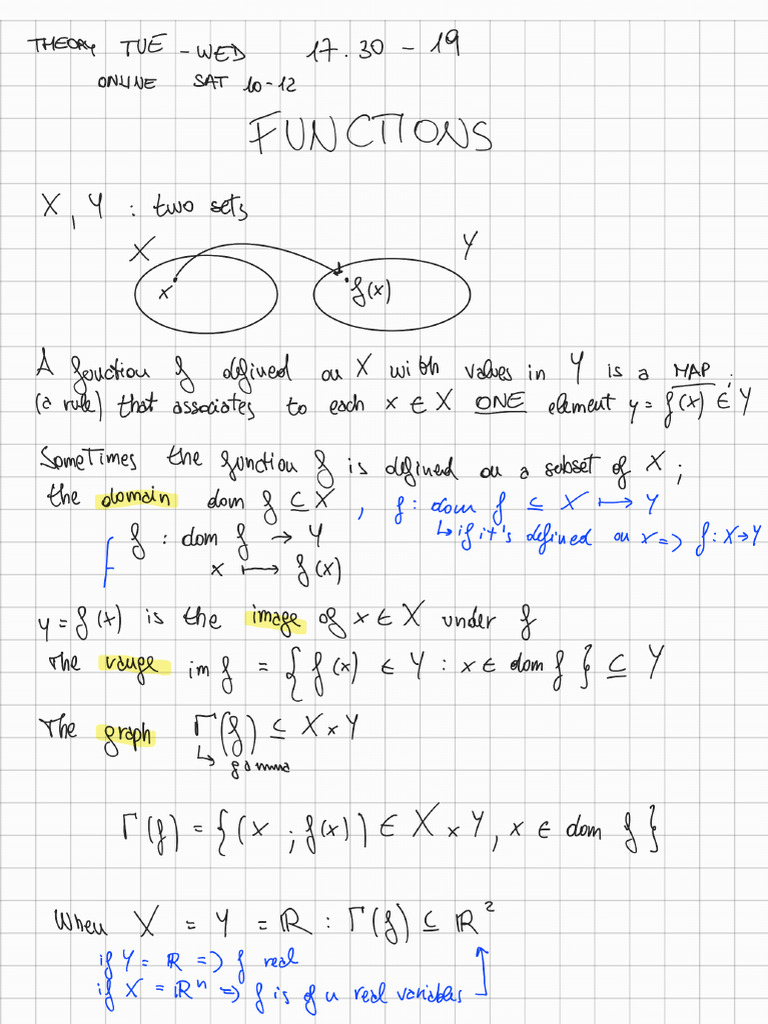 THEORY TUE - WED 17.30 - 19
ONLINE SAT 10-12
FUNCTIONS
X, Y : two sets
X Y
x f(x)
A function f defined on X with values in Y is a MAP
(a rule) that associates to each x ∈ X ONE element y = f(x) ∈ Y
Sometimes the function f is defined on a subset of X ;
the domain dom f ⊆ X , f : dom f ⊆ X ⟼ Y
f : dom f → Y ↳ if it's defined on x => f : X → Y
x ⟼ f(x)
y = f(x) is the image of x ∈ X under f
The range im f = { f(x) ∈ Y : x ∈ dom f } ⊆ Y
The graph Γ(f) ⊆ X × Y
↳ gamma
Γ(f) = { (x ; f(x)) ∈ X × Y, x ∈ dom f }
When X = Y = ℝ : Γ(f) ⊆ ℝ²
if Y = ℝ => f real
if X = ℝⁿ => f is of n real variables